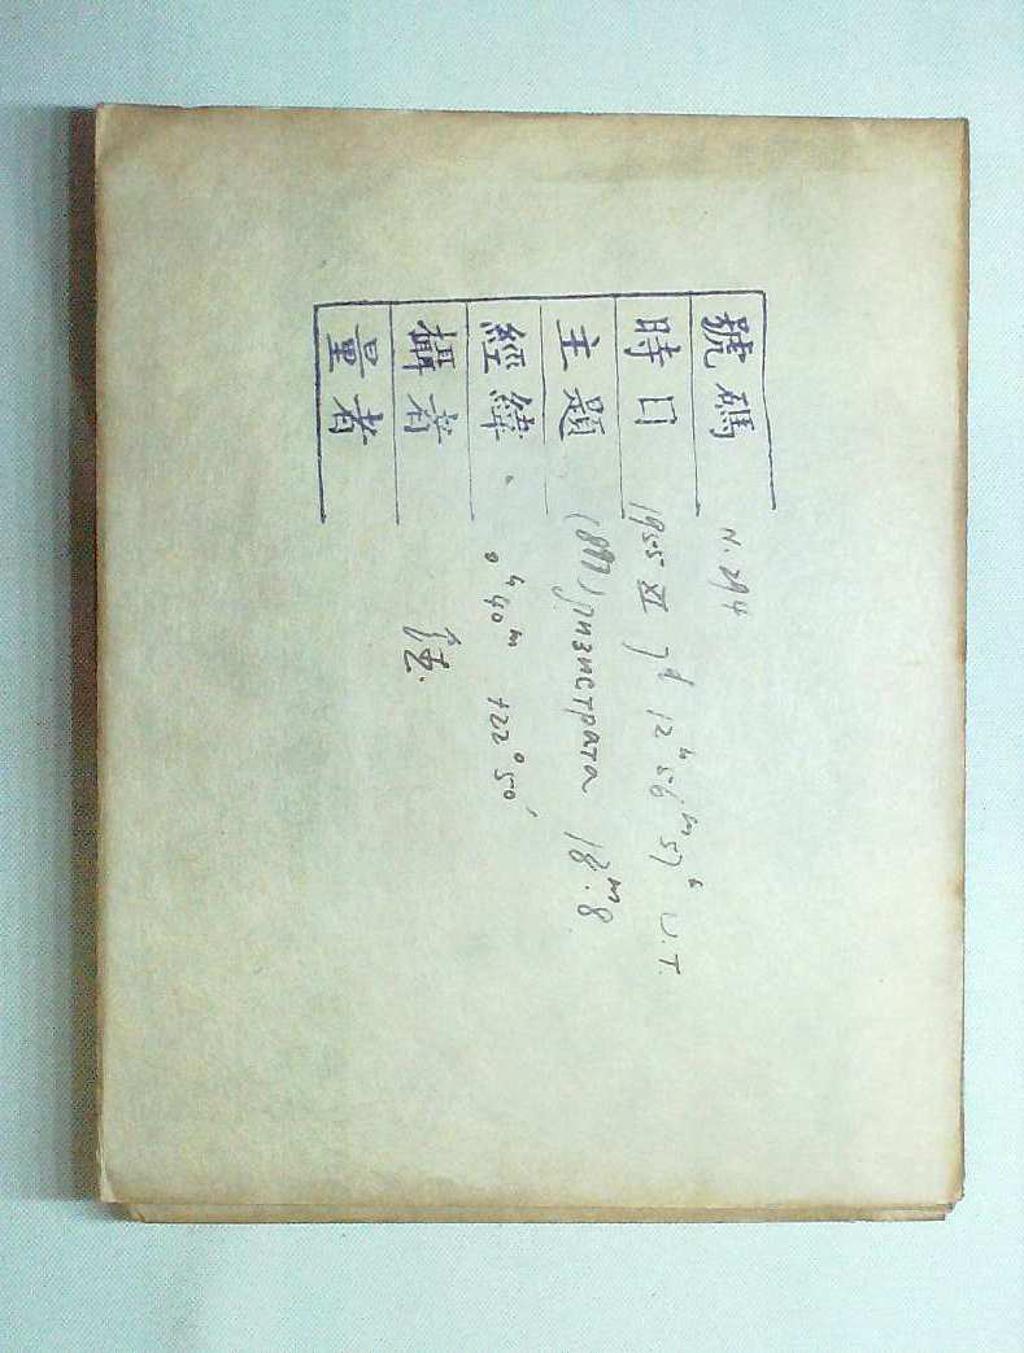 號碼 N. 294
時日 1955 XI 7ᵈ 12ʰ 56ᵐ 57ˢ U.T.
主題 Лизистрата 18ᵐ.8
經緯 0ʰ40ᵐ +22°50′
攝者
量者